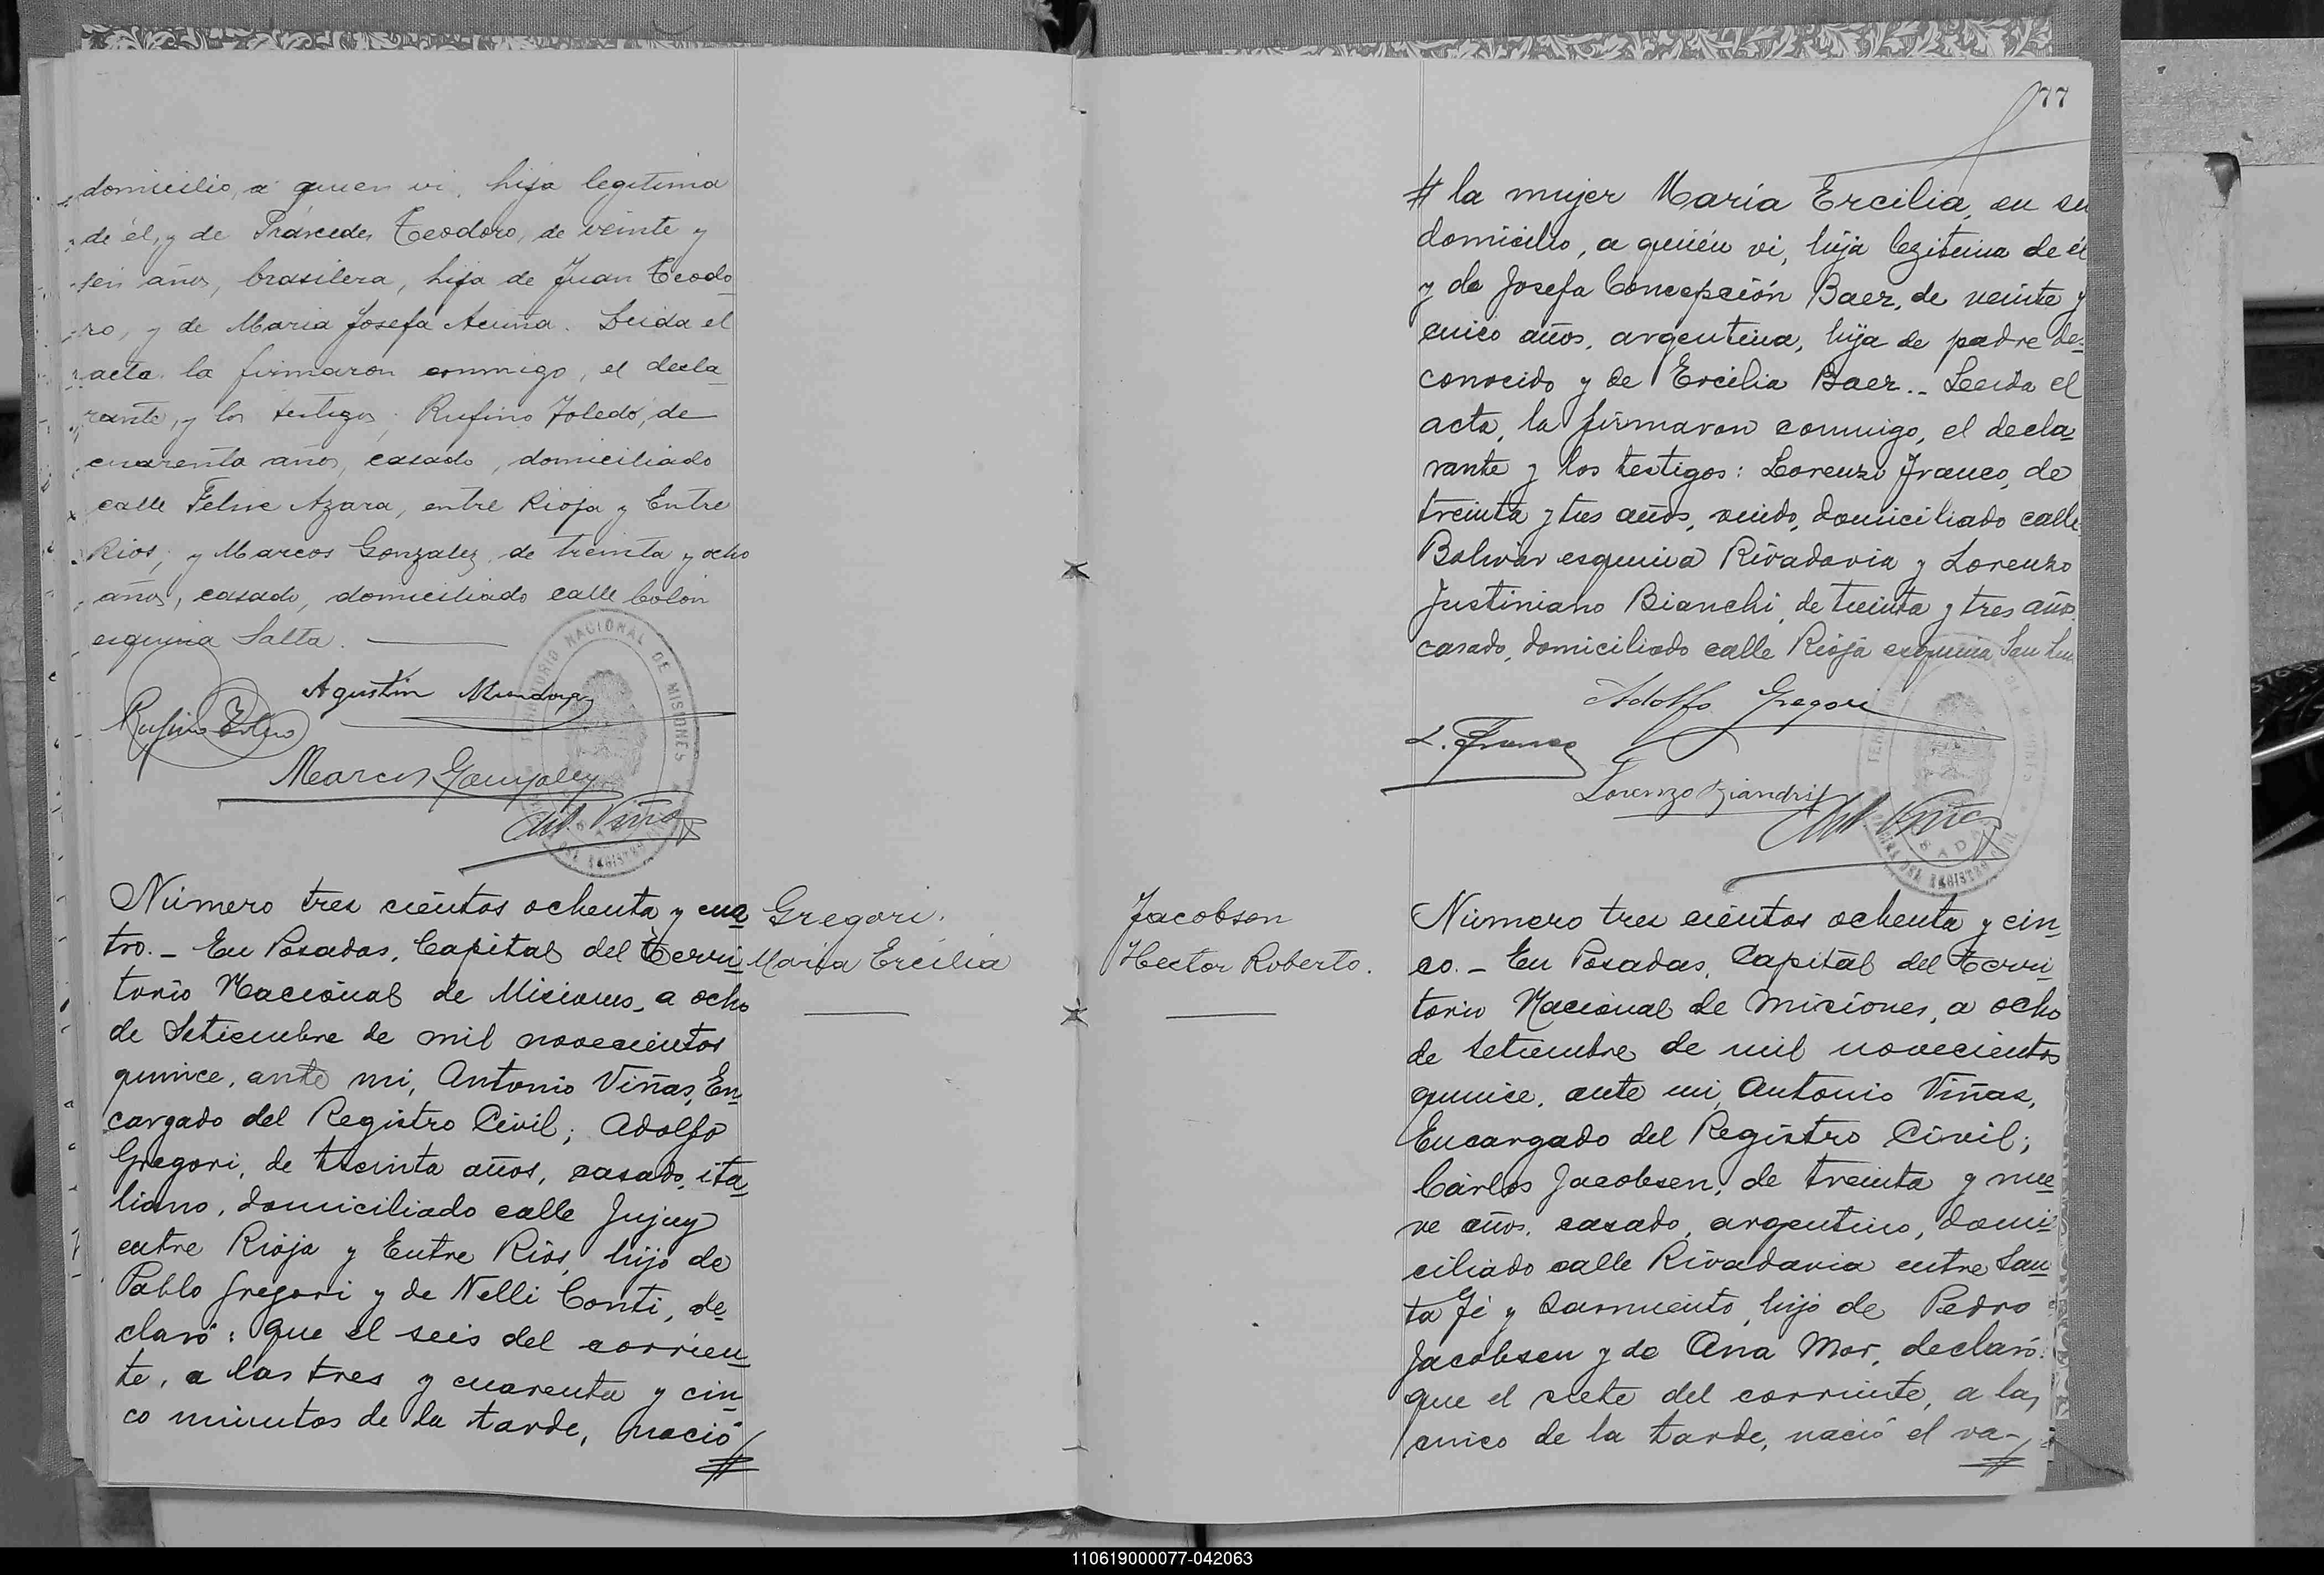 domicilio, a quien vi, hija legitima
de él, y de Práxcedes Teodoro, de veinte y
seis años, brasilera, hija de Juan Teodo-
ro, y de Maria Josefa Acuña. Leida el
acta la firmaron conmigo, el decla-
rante, y los testigos; Rufino Toledo, de
cuarenta años, casado, domiciliado
calle Felix Azara, entre Rioja y Entre
Rios; y Marcos Gonzalez, de treinta y ocho
años, casado, domiciliado calle Colón
esquina Salta.
Agustin Mendoza
Rufino Toledo
Marcos Gonzalez
Ant. Viñas
TERRITORIO NACIONAL DE MISIONES
Número tres cientos ochenta y cua-
tro.- En Posadas, Capital del Terri-
torio Nacional de Misiones, a ocho
de Setiembre de mil novecientos
quince, ante mi, Antonio Viñas, En-
cargado del Registro Civil; Adolfo
Gregori, de treinta años, casado, ita-
liano, domiciliado calle Jujuy
entre Rioja y Entre Rios, hijo de
Pablo Gregori y de Nelli Conti, de-
claró: que el seis del corrien-
te, a las tres y cuarenta y cin-
co minutos de la tarde, nació
#
Gregori.
Maria Ercilia
77
# la mujer María Ercilia, en su
domicilio, a quién vi, hija lezitima de él
y de Josefa Concepción Baez, de veinte y
cinco años, argentina, hija de padre des-
conocido y de Ercilia Baez.- Leida el
acta, la firmaron conmigo, el decla-
rante y los testigos: Lorenzo Franco, de
treinta y tres años, viudo, domiciliado calle
Bolivar esquina Rivadavia y Lorenzo
Justiniano Bianchi, de treinta y tres años,
casado, domiciliado calle Rioja esquina San Luis
Adolfo Gregori
L. Franco
Lorenzo Biandri
Ant. Viñas
Jacobsen
Hector Roberto.
Número tres cientos ochenta y cin-
co.- En Posadas, Capital del Terri-
torio Nacional de Misiones, a ocho
de Setiembre de mil novecientos
quince, ante mi, Antonio Viñas,
Encargado del Registro Civil;
Cárlos Jacobsen, de treinta y nue-
ve años, casado, argentino, domi-
ciliado calle Rivadavia entre San-
ta Fé y Sarmiento, hijo de Pedro
Jacobsen y de Ana Mor, declaró:
que el siete del corriente, a las
cinco de la tarde, nació el va-
#
110619000077-042063